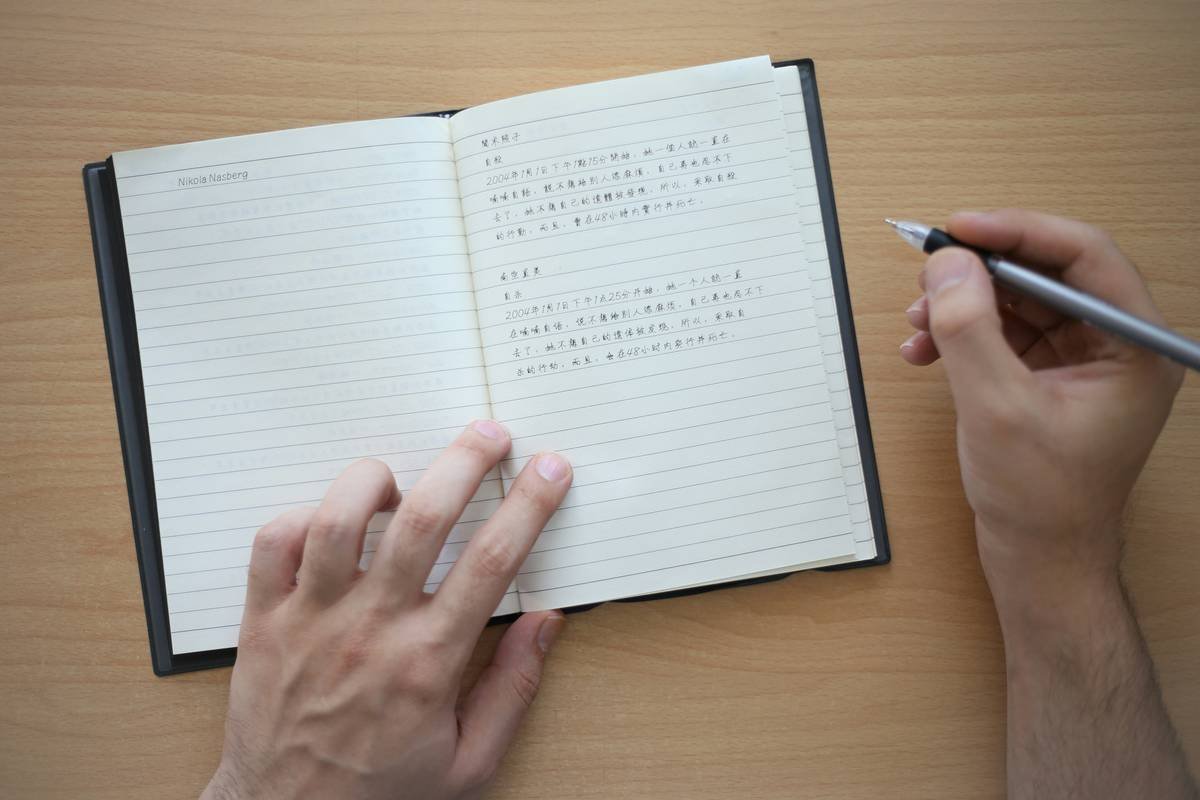 Nikola Nasberg
間木照子
自殺
2004年1月1日下午1點15分開始，她一個人就一直在
喃喃自語，說不願給別人添麻煩，自己再也忍不下
去了，她不願自己的遺體被發現，所以，采取自殺
的行動，而且，會在48小時內實行并死亡。
南空直美
自杀
2004年1月1日下午1点25分开始，她一个人就一直
在喃喃自语，说不愿给别人添麻烦，自己再也忍不下
去了，她不愿自己的遗体被发现，所以，采取自
杀的行动，而且，会在48小时内实行并死亡。